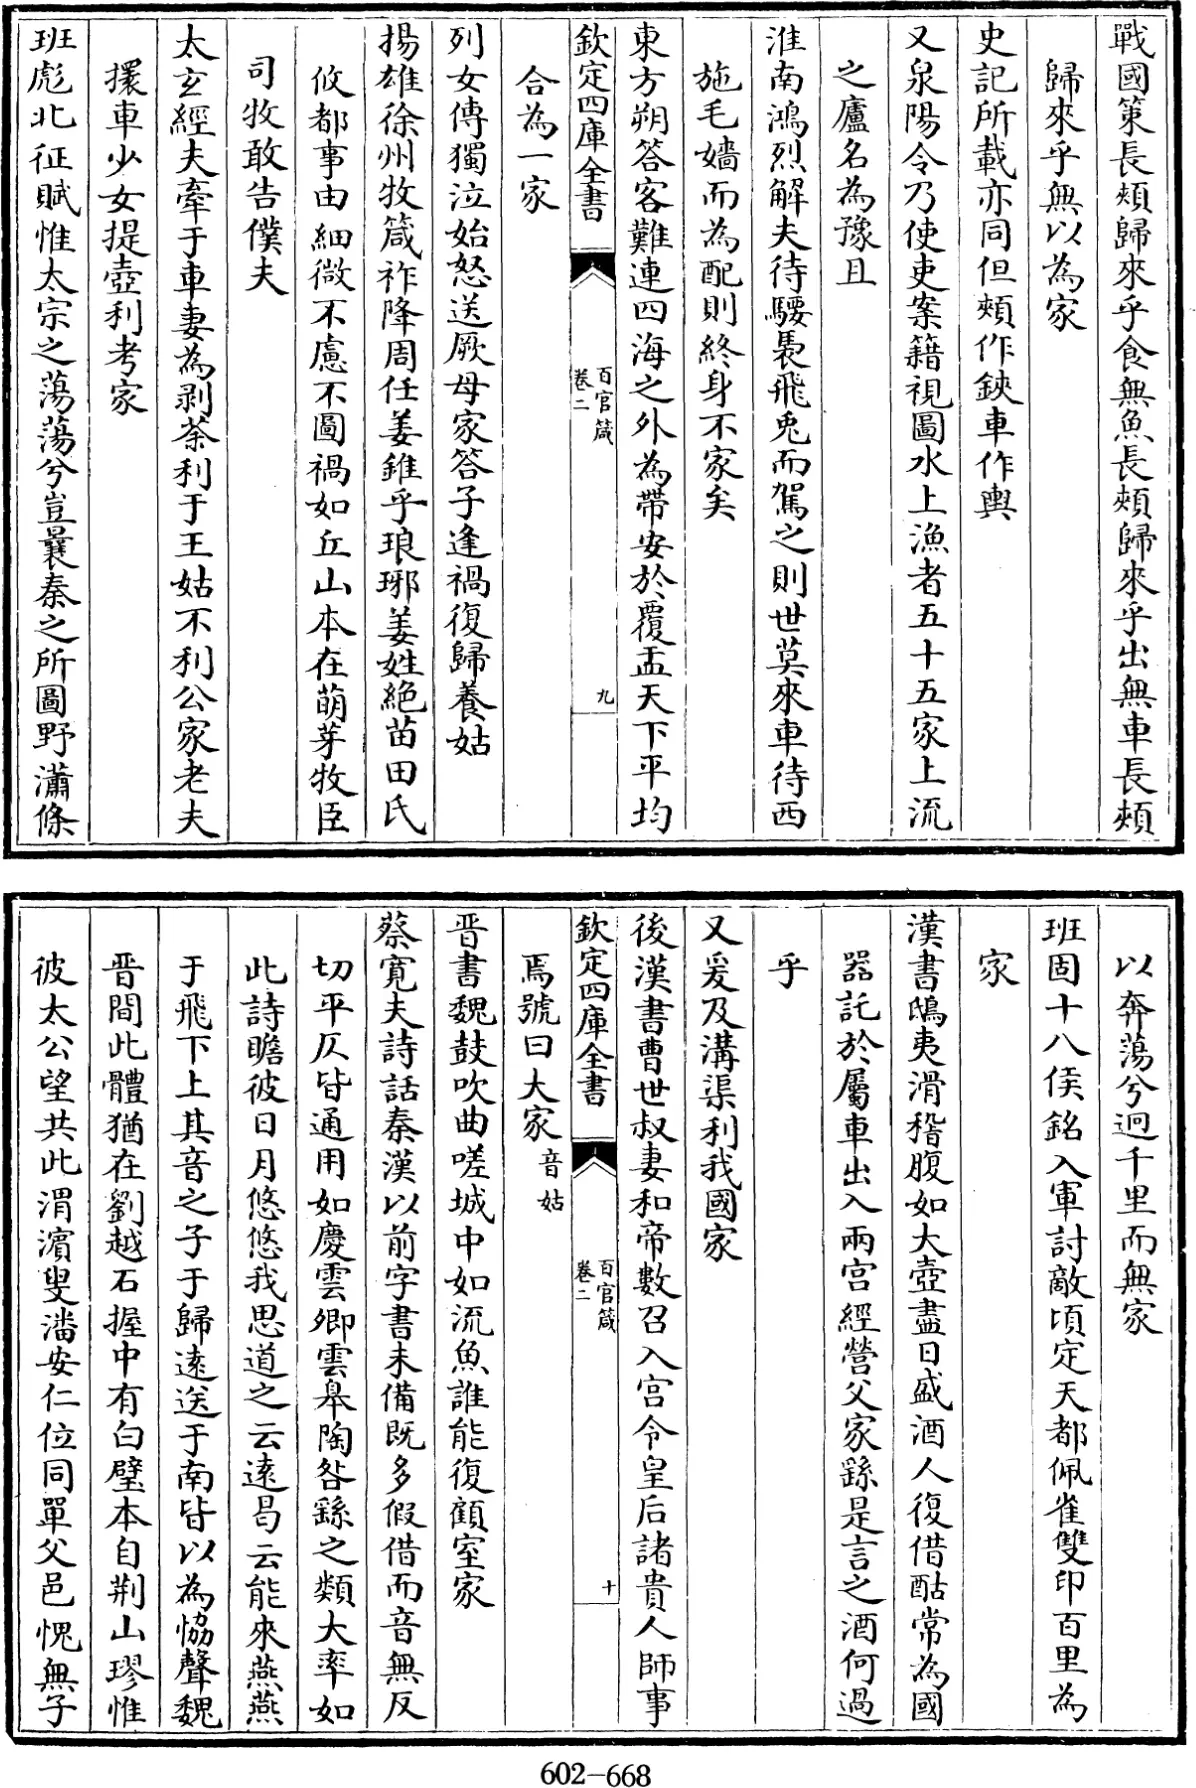 戰國策長頰歸來乎食無魚長頰歸來乎出無車長頰
歸來乎無以為家
史記所載亦同但頰作鋏車作輿
又泉陽令乃使吏案籍視圖水上漁者五十五家上流
之廬名為豫且
淮南鴻烈解夫待騕褭飛兎而駕之則世莫來車待西
施毛嬙而為配則終身不家矣
東方朔答客難連四海之外為帶安於覆盂天下平均
合為一家
欽定四庫全書
百官箴
卷二
九
列女傳獨泣始怒送厥母家答子逢禍復歸養姑
揚雄徐州牧箴祚降周任姜錐乎琅琊姜姓絶苗田氏
攸都事由細微不慮不圖禍如丘山本在萌芽牧臣
司牧敢告僕夫
太玄經夫牽于車妻為剥荼利于王姑不利公家老夫
擐車少女提壺利考家
班彪北征賦惟太宗之蕩蕩兮豈曩秦之所圖野瀟條
以奔蕩兮迥千里而無家
班固十八侯銘入軍討敵頃定天都佩雀雙印百里為
家
漢書鴟夷滑稽腹如大壺盡日盛酒人復借酤常為國
器託於屬車出入兩宮經營父家繇是言之酒何過
乎
又爰及溝渠利我國家
後漢書曹世叔妻和帝數召入宮令皇后諸貴人師事
欽定四庫全書
百官箴
卷二
十
焉號曰大家音姑
晋書魏鼓吹曲嗟城中如流魚誰能復顧室家
蔡寛夫詩話秦漢以前字書未備既多假借而音無反
切平仄皆通用如慶雲卿雲臯陶咎繇之類大率如
此詩瞻彼日月悠悠我思道之云遠曷云能來燕燕
于飛下上其音之子于歸遠送于南皆以為恊聲魏
晋間此體猶在劉越石握中有白璧本自荆山璆惟
彼太公望共此渭濱叟潘安仁位同單父邑愧無子
602-668